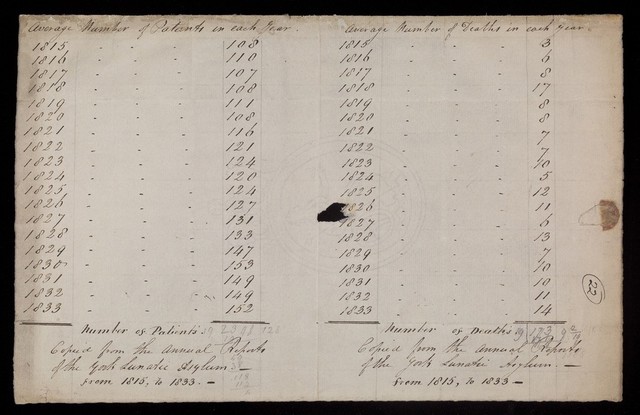 Average Number of Patients in each Year.
1815 - - - - 108
1816 - - - - 110
1817 - - - - 107
1818 - - - - 108
1819 - - - - 111
1820 - - - - 108
1821 - - - - 116
1822 - - - - 121
1823 - - - - 124
1824 - - - - 120
1825 - - - - 124
1826 - - - - 127
1827 - - - - 131
1828 - - - - 133
1829 - - - - 147
1830 - - - - 153
1831 - - - - 149
1832 - - - - 149
1833 - - - - 152
Number of Patients
Copied from the Annual Reports
of the York Lunatic Asylum. -
from 1815, to 1833. -
Average Number of Deaths in each Year.
1815 - - - - 3
1816 - - - - 6
1817 - - - - 8
1818 - - - - 17
1819 - - - - 8
1820 - - - - 8
1821 - - - - 7
1822 - - - - 7
1823 - - - - 10
1824 - - - - 5
1825 - - - - 12
1826 - - - - 11
1827 - - - - 6
1828 - - - - 13
1829 - - - - 7
1830 - - - - 10
1831 - - - - 10
1832 - - - - 11
1833 - - - - 14
Number of Deaths
Copied from the Annual Reports
of the York Lunatic Asylum. -
from 1815, to 1833 -
22